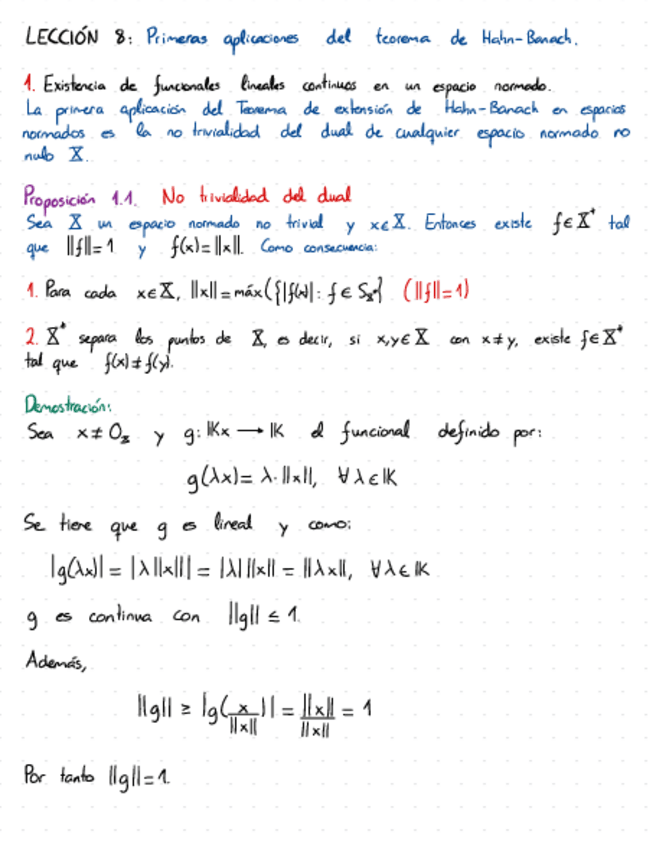 LECCIÓN 8: Primeras aplicaciones del teorema de Hahn-Banach.
1. Existencia de funcionales lineales continuos en un espacio normado.
La primera aplicación del Teorema de extensión de Hahn-Banach en espacios
normados es la no trivialidad del dual de cualquier espacio normado no
nulo X.
Proposición 1.1. No trivialidad del dual
Sea X un espacio normado no trivial y x∈X. Entonces existe f∈X* tal
que ||f||=1 y f(x)=||x||. Como consecuencia:
1. Para cada x∈X, ||x||=máx({|f(x)|: f∈S_X*} (||f||=1)
2. X* separa los puntos de X, es decir, si x,y∈X con x≠y, existe f∈X*
tal que f(x)≠f(y).
Demostración:
Sea x≠0_X y g: 𝕂x → 𝕂 el funcional definido por:
g(λx)=λ·||x||, ∀λ∈𝕂
Se tiene que g es lineal y como:
|g(λx)| = |λ||x||| = |λ|||x|| = ||λx||, ∀λ∈𝕂
g es continua con ||g|| ≤ 1.
Además,
||g|| ≥ |g(x/||x||)| = ||x||/||x|| = 1
Por tanto ||g||=1.